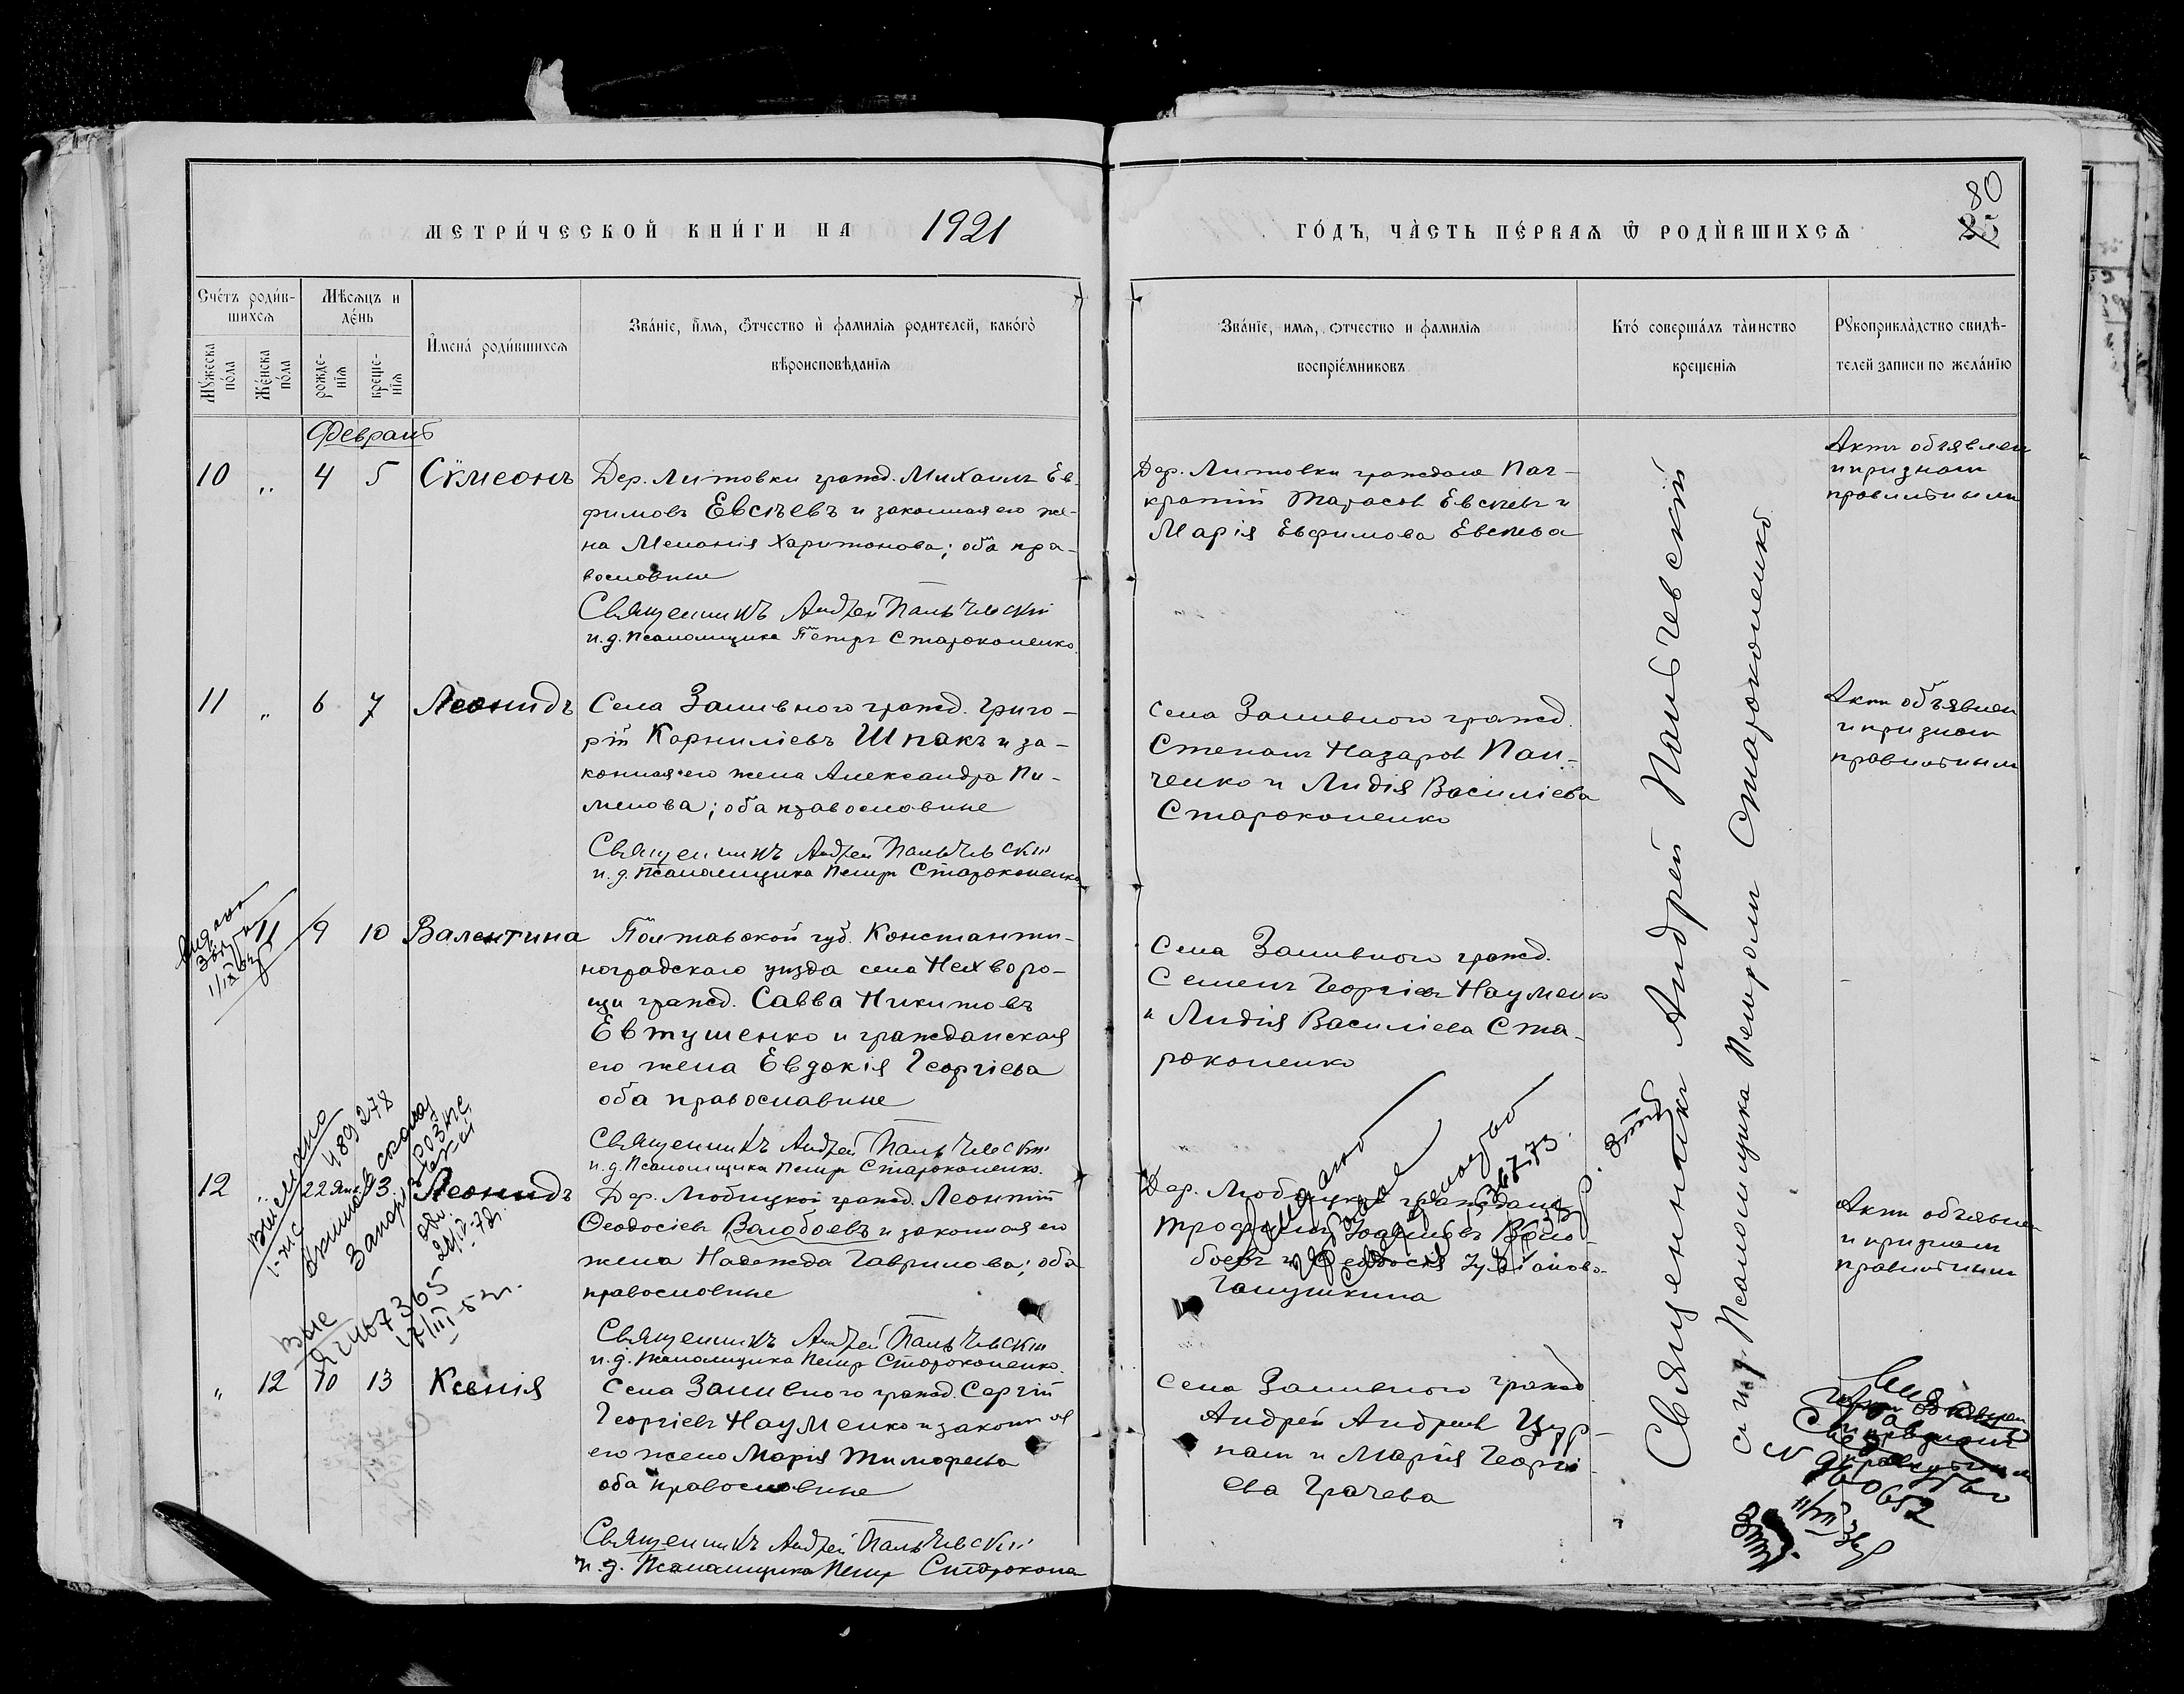 МЕТРИ́ЧЕСКОЙ КНИ́ГИ НА 1921
ГО́ДЪ, ЧА̀СТЬ ПЕ́РВАѦ Ѿ РОДЍВШИХСѦ
80
Сче́тъ роди́в-
шихсѧ
Мѣ́сѧцъ и
де́нь
Мꙋ́жеска
по́ла
Же́нска
по́ла
рожде-
нїѧ
креще-
нїѧ
И҆мена́ роди́вшихсѧ
Зва́нїе, и҆́мѧ, ѻ҆́тчество и҆ фамилїѧ родителей, како́гѡ
вѣроисповѣданїѧ
Зва́нїе, имѧ, ѻтчество и фамилїѧ
воспрїе́мниковъ
Кто́ соверша́лъ та̀инство
крещенїѧ
Рꙋкоприкла̀дство свидѣ-
телей записи по жела́нїю
Февраль
10 „ 4 5 Сѷмеонъ
Дер. Литовки гражд. Михаилъ Ев-
фимовъ Евсѣевъ и законная его же-
на Меланія Харитонова; оба пра-
вославные
Священникъ Андрей Пальчевскій
и. д. Псаломщика Петръ Староконенко.
Дер. Литовки граждане Пан-
кратій Тарасов Евсѣевъ и
Марія Евфимова Евсѣева
Актъ объявлен
и признан
правильным
11 „ 6 7 Леонидъ
Села Заливного гражд. Григо-
рій Корниліевъ Шпакъ и за-
конная его жена Александра Пи-
менова; оба православные
Священникъ Андрей Пальчевскій
и. д. Псаломщика Петръ Староконенко
Села Заливного гражд.
Степанъ Назаров Пан-
ченко и Лидія Василіева
Староконенко
Акт объявлен
и признан
правильным
11 9 10 Валентина
Полтавской губ. Константи-
ноградскаго уѣзда села Нехворо-
щи гражд. Савва Никитовъ
Евтушенко и гражданская
его жена Евдокія Георгіева
оба православные
Священникъ Андрей Пальчевскій
и. д. Псаломщика Петръ Староконенко.
Села Заливного гражд.
Семенъ Георгіевъ Науменко
и Лидія Василіева Ста-
роконенко
12 „ 22 Янв. 3. Леонидъ
Дер. Любицкой гражд. Леонтій
Ѳеодосіевъ Валобоевъ и законная его
жена Надежда Гаврилова; оба
православные
Священникъ Андрей Пальчевскій
и. д. Псаломщика Петръ Староконенко.
Дер. Любицкой граждане
боевъ и Ѳеодосія
Ганушкина
Акт объявлен
и признан
правильным
489278
367,73
„ 12 10 13 Ксенія
Села Заливного гражд. Сергій
Георгіевъ Науменко и законная
его жена Марія Тимофеева
оба православные
Священникъ Андрей Пальчевскій
и. д. Псаломщика Петръ Староконе
Села Заливного гражд
Андрей Андреев Цур-
пал и Марія Георгі-
ева Грачева
960652
Священникъ Андрей Пальчевскій
с и. д. Псаломщика Петром Староконенко